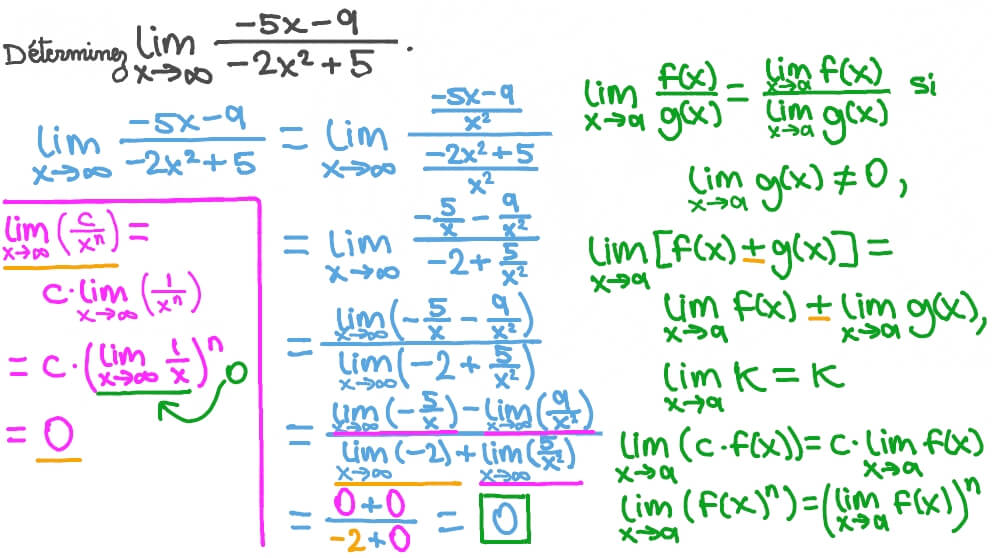 Déterminez lim x→∞ (-5x-9)/(-2x²+5).
lim x→∞ (-5x-9)/(-2x²+5) = lim x→∞ ((-5x-9)/x²)/((-2x²+5)/x²)
= lim x→∞ (-5/x - 9/x²)/(-2+5/x²)
= lim x→∞ (-5/x - 9/x²)/lim x→∞ (-2+5/x²)
= (lim x→∞ (-5/x) - lim x→∞ (9/x²))/(lim x→∞ (-2) + lim x→∞ (5/x²))
= (0+0)/(-2+0) = 0
lim x→∞ (c/xⁿ) =
c·lim x→∞ (1/xⁿ)
= c·(lim x→∞ 1/x)ⁿ 0
= 0
lim x→a f(x)/g(x) = lim x→a f(x)/lim x→a g(x) si
lim x→a g(x) ≠ 0,
lim x→a [f(x) ± g(x)] =
lim x→a f(x) ± lim x→a g(x),
lim x→a K = K
lim x→a (c·f(x)) = c·lim x→a f(x)
lim x→a (f(x)ⁿ) = (lim x→a f(x))ⁿ